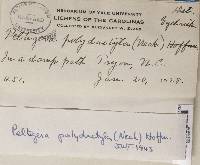 HERBARIUM OF YALE UNIVERSITY
LICHENS OF THE CAROLINAS
COLLECTED BY ALEXANDER W. EVANS
Peltigera polydactyla (Neck.) Hoffm.
In a damp path Tryon, N.C.
Jan. 20, 1928.
Peltigera polydactyla (Neck) Hoffm.
1943